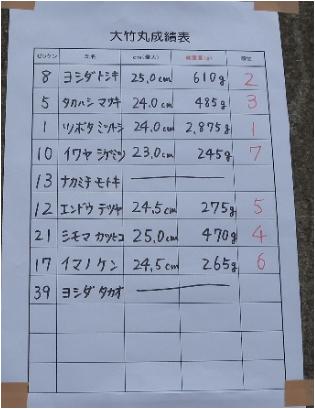 大竹丸成績表
ゼッケン 氏名 cm(最大) 総重量(g) 順位
8 ヨシダトシキ 25.0cm 610g 2
5 タカハシ マサキ 24.0cm 485g 3
1 ツボタ ミツトシ 24.0cm 2,875g 1
10 イワヤ シゲミツ 23.0cm 245g 7
13 ナカミチ モトキ
12 エンドウ テツヤ 24.5cm 275g 5
21 シモマ カツヒコ 25.0cm 470g 4
17 イマノ ケン 24.5cm 265g 6
39 ヨシダ タカオ